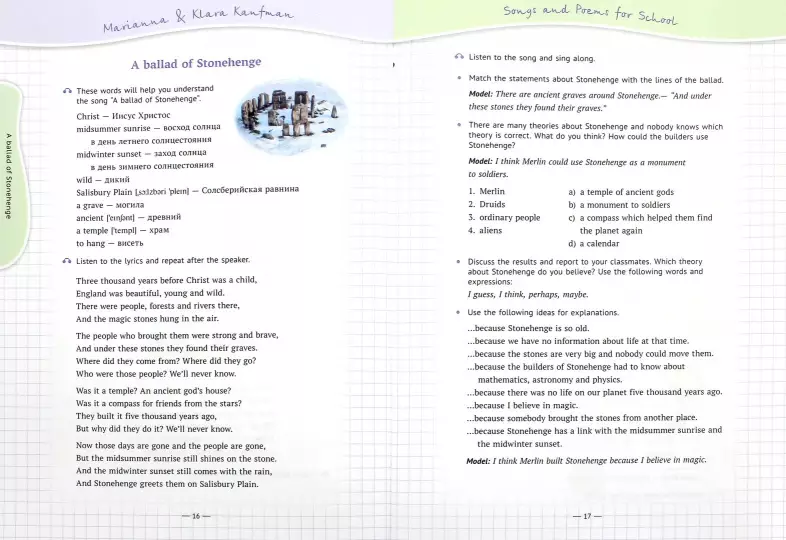 Marianna & Klara Kaufman
A ballad of Stonehenge
A ballad of Stonehenge
These words will help you understand
the song "A ballad of Stonehenge".
Christ — Иисус Христос
midsummer sunrise — восход солнца
в день летнего солнцестояния
midwinter sunset — заход солнца
в день зимнего солнцестояния
wild — дикий
Salisbury Plain [ˌsɔlzbəri ˈpleɪn] — Солсберийская равнина
a grave — могила
ancient [ˈeɪnʃənt] — древний
a temple [ˈtempl] — храм
to hang — висеть
Listen to the lyrics and repeat after the speaker.
Three thousand years before Christ was a child,
England was beautiful, young and wild.
There were people, forests and rivers there,
And the magic stones hung in the air.
The people who brought them were strong and brave,
And under these stones they found their graves.
Where did they come from? Where did they go?
Who were those people? We'll never know.
Was it a temple? An ancient god's house?
Was it a compass for friends from the stars?
They built it five thousand years ago,
But why did they do it? We'll never know.
Now those days are gone and the people are gone,
But the midsummer sunrise still shines on the stone.
And the midwinter sunset still comes with the rain,
And Stonehenge greets them on Salisbury Plain.
— 16 —
Songs and Poems for School
Listen to the song and sing along.
• Match the statements about Stonehenge with the lines of the ballad.
Model: There are ancient graves around Stonehenge.— "And under
these stones they found their graves."
• There are many theories about Stonehenge and nobody knows which
theory is correct. What do you think? How could the builders use
Stonehenge?
Model: I think Merlin could use Stonehenge as a monument
to soldiers.
1. Merlin a) a temple of ancient gods
2. Druids b) a monument to soldiers
3. ordinary people c) a compass which helped them find
4. aliens the planet again
d) a calendar
• Discuss the results and report to your classmates. Which theory
about Stonehenge do you believe? Use the following words and
expressions:
I guess, I think, perhaps, maybe.
• Use the following ideas for explanations.
...because Stonehenge is so old.
...because we have no information about life at that time.
...because the stones are very big and nobody could move them.
...because the builders of Stonehenge had to know about
mathematics, astronomy and physics.
...because there was no life on our planet five thousand years ago.
...because I believe in magic.
...because somebody brought the stones from another place.
...because Stonehenge has a link with the midsummer sunrise and
the midwinter sunset.
Model: I think Merlin built Stonehenge because I believe in magic.
— 17 —